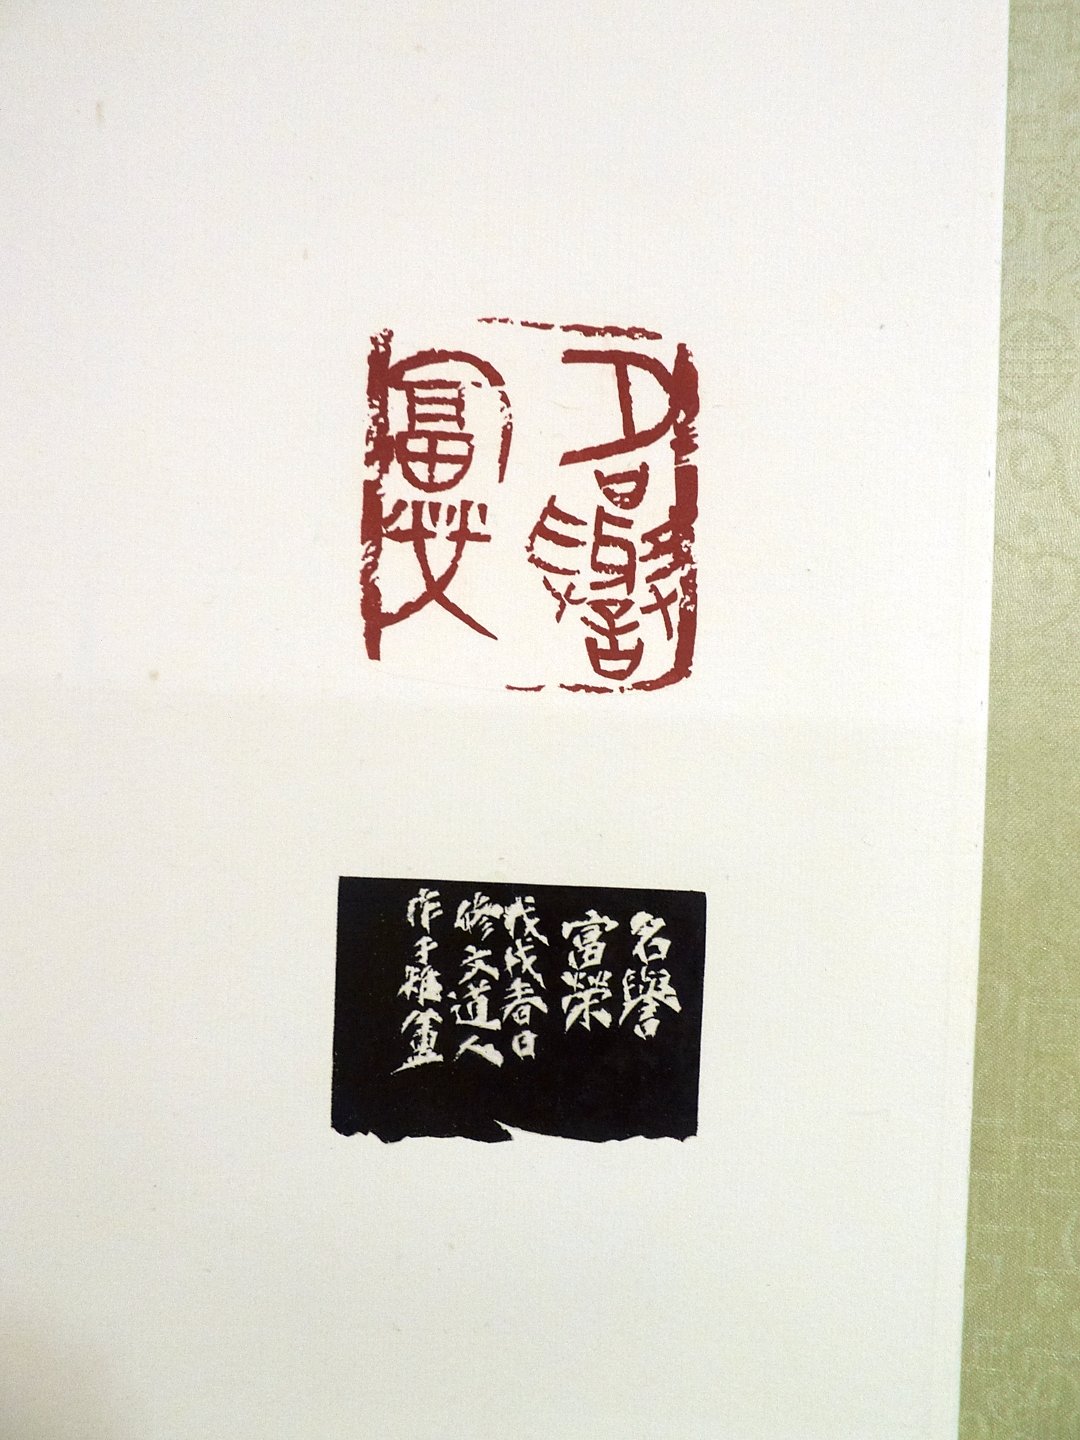 名譽
富榮
名譽
富榮
戊戌春日
修文道人
作于雅廬